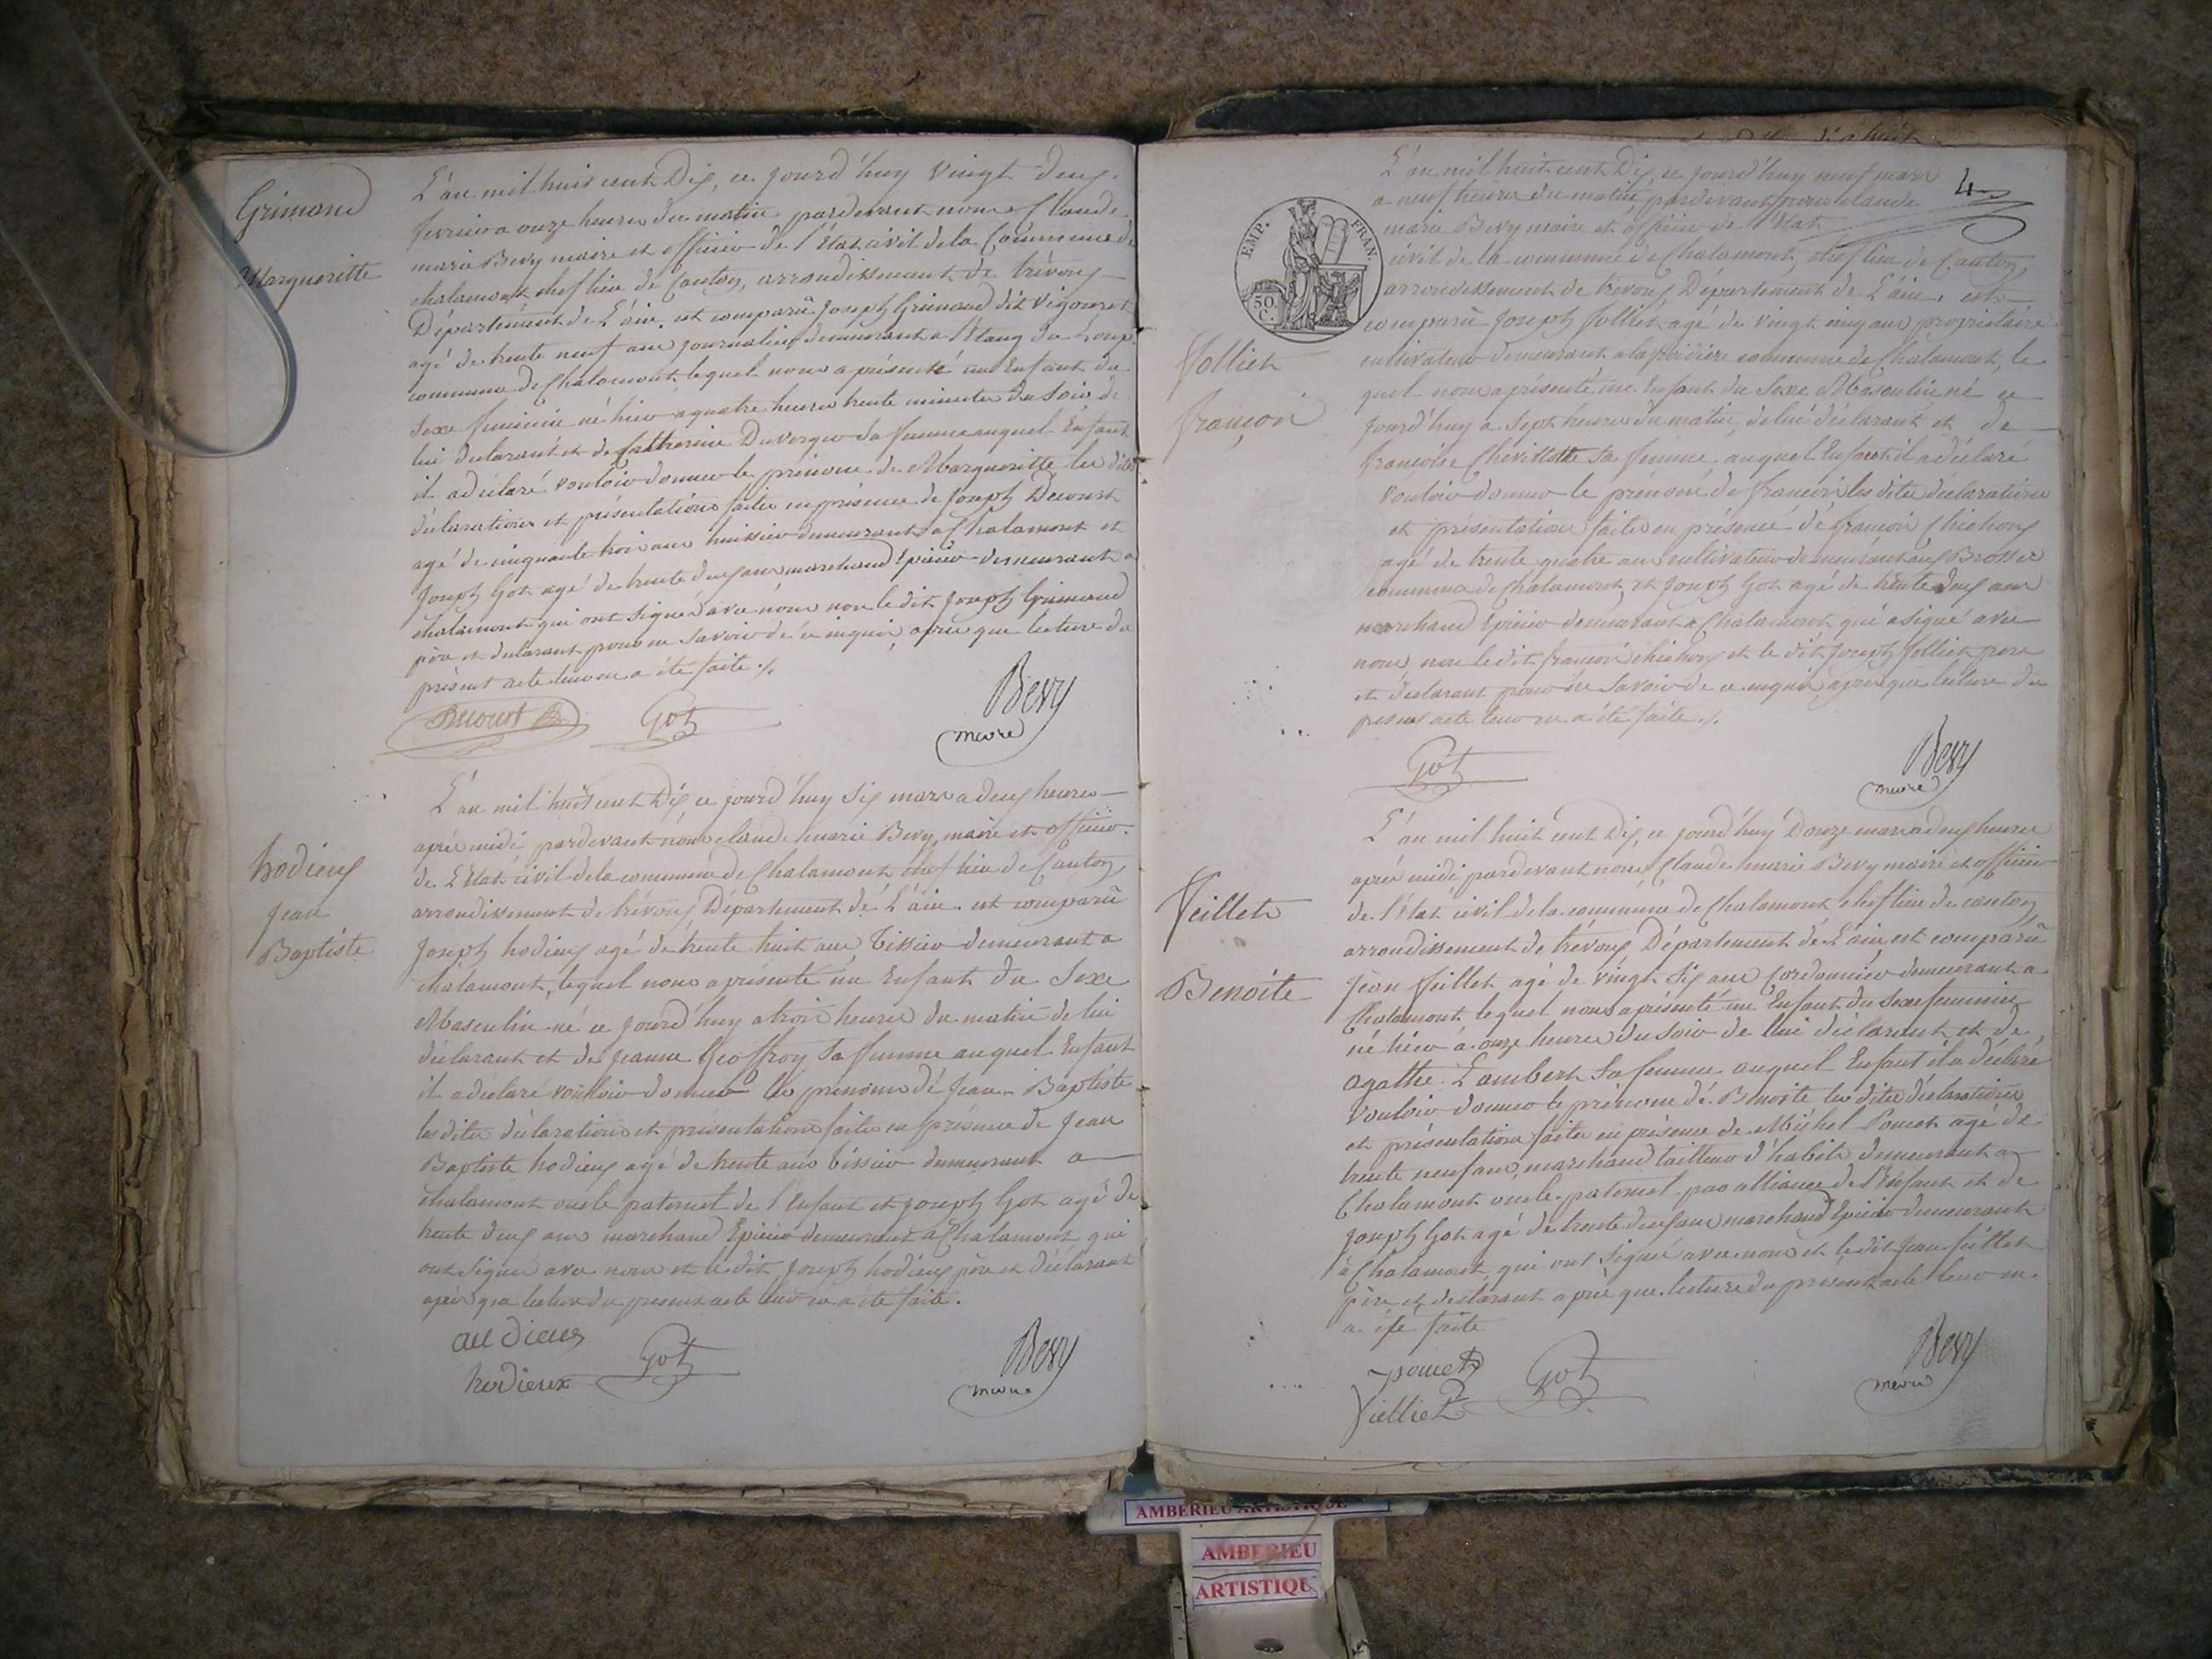 Grimaud
Margueritte
L'an mil huit cent Dix, ce jourd'huy vingt deux
fevrier a onze heures du matin pardevant nous Claude
marie Bevy maire et officier de l'état civil de la Commune de
chalamont chef lieu de Canton, arrondissement de trévoux
Département de L'ain, est comparû Joseph Grimaud dit
agé de trente neuf ans journalier demeurant a l'Etang du Loup
commune de Chalamont lequel nous a présenté un Enfant du
Sexe feminin né hier a quatre heures trente minutes du Soir de
lui declarant et de Catherine Duverger sa femme auquel Enfant
il a déclaré vouloir donner le prénom de Margueritte les dites
déclaration et présentation faites en présence de Joseph Decourt
agé de cinquante trois ans huissier demeurant a Chalamont et
Joseph Got agé de trente deux ans marchand Epicier demeurant a
chalamont qui ont signé avec nous non le dit Joseph Grimaud
père et declarant pour ne savoir de ce enquis, après que lecture du
présent acte leur en a été faite ./.
Decourt Got Bevy
maire
hodieux
Jean
Baptiste
L'an mil huit cent Dix ce jourd'huy six mars a deux heures
après midi pardevant nous claude marie Bevy, maire et officier
de L'Etat civil de la commune de Chalamont chef lieu de Canton
arrondissement de trévoux Département de L'ain. est comparû
Joseph hodieux agé de trente huit ans, Tissier demeurant a
chalamont, lequel nous a présenté un Enfant du Sexe
Masculin né ce jourd'huy a trois heures du matin de lui
déclarant et de jeanne Geoffroy Sa femme auquel Enfant
il a déclaré vouloir donner le prenom de Jean Baptiste
les dites déclaration et présentation faites en présence de Jean
Baptiste hodieux agé de trente ans tissier demeurant a
chalamont oncle paternel de l'enfant et joseph Got agé de
trente deux ans marchand Epicier demeurant a Chalamont qui
ont signés avec nous et le dit Joseph hodieux père et déclarant
après que lecture du present acte leur en a été faite.
au dieux
hodieux Got Bevy
maire
4
EMP. FRAN.
50.
C.
folliet
françois
L'an mil huit cent Dix, ce jourd'huy neuf mars
a neuf heures du matin pardevant nous claude
marie Bevy maire et officier de l'état
civil de la commune de Chalamont, chef lieu de Canton,
arrondissement de trevoux Département de L'ain, est
comparû Joseph folliet agé de vingt cinq ans propriétaire
cultivateur demeurant a la commune de Chalamont, le
quel nous a présenté un Enfant du Sexe Masculin né ce
jourd'huy a sept heures du matin, de lui déclarant et de
françoise Chevillotte Sa femme, auquel Enfant il a déclaré
vouloir donner le prénom de françois les dites déclaration
et présentation faites en présence de françois Chichoux
agé de trente quatre ans cultivateur demeurant aux Brosses
commune de Chalamont, et Joseph Got agé de trente deux ans
marchand Epicier demeurant a Chalamont, qui a signé avec
nous non le dit françois chichoux et le dit Joseph folliet pere
et declarant pour ne savoir de ce enquis après que lecture du
present acte leur en a été faite ./.
Got Bevy
maire
feillet
Benoite
L'an mil huit cent Dix, ce jourd'huy Douze mars a deux heures
après midi pardevant nous Claude marie Bevy maire et officier
de l'état civil de la commune de Chalamont chef lieu de canton
arrondissement de trévoux Département de L'ain est comparû
Jean feillet agé de vingt six ans Cordonnier demeurant a
Chalamont lequel nous a présenté un Enfant du Sexe feminin
né hier à onze heures du soir de lui déclarant et de
agathe Lambert sa femme auquel Enfant il a déclaré
vouloir donner le prénom de Benoite les dites déclaration
et présentation faites en présence de Michel Pomet agé de
trente neuf ans, marchand tailleur d'habits demeurant a
Chalamont oncle paternel par alliance de l'Enfant et de
Joseph Got agé de trente deux ans marchand Epicier demeurant
à Chalamont, qui ont signé avec nous et le dit Jean feillet
père et declarant après que lecture du présent acte leur en
a été faite
pomet
feillet Got Bevy
maire
AMBERIEU ARTISTIQUE
AMBERIEU
ARTISTIQUE